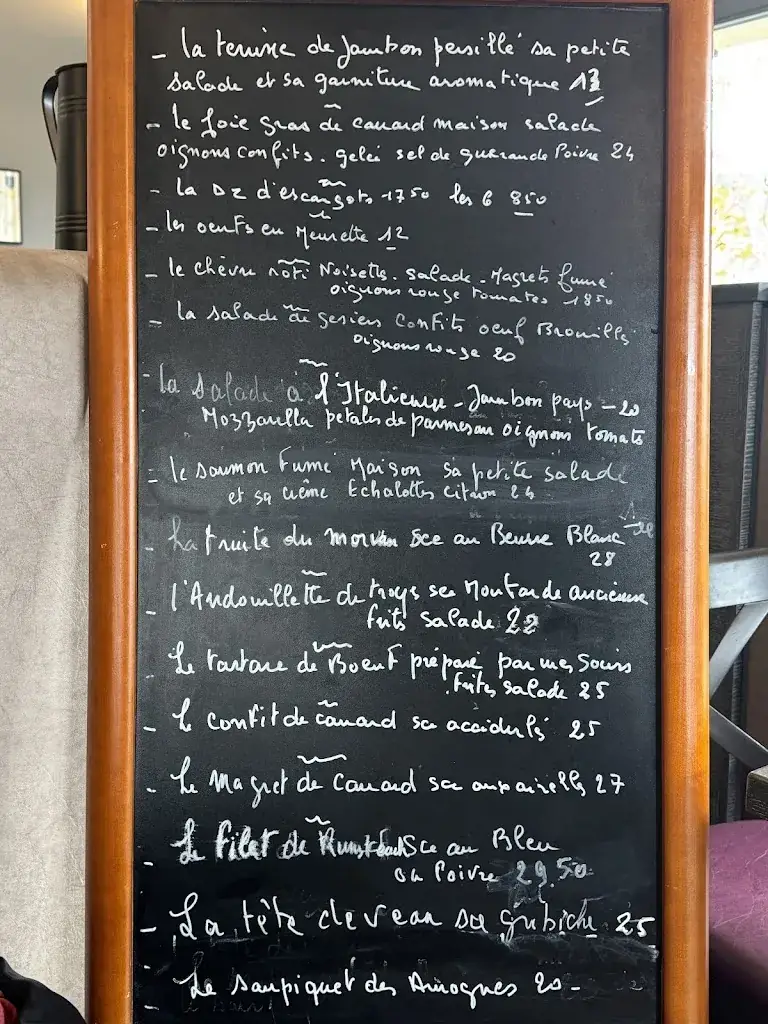 - la terrine de Jambon persillé sa petite
salade et sa garniture aromatique 13
- le foie gras de canard maison salade
oignons confits. gelée sel de guerande Poivre 24
- la Dz d'escargots 1750 les 6 850
- les oeufs en Meurette 12
- le chèvre roti Noisette. salade - Magrets fumé
oignons rouge tomates 1850
- la salade de gesiers confits oeuf Brouillé
oignons rouge 20
- la salade à l'Italienne - Jambon pays - 20
Mozzarella pétales de parmesan oignons tomats
- le saumon Fumé Maison sa petite salade
et sa crème Echalottes citron 24
- La truite du morvan sce au Beurre Blanc
28
- l'Andouillette de troyes sce Moutarde ancienne
frits salade 22
Le tartare de Boeuf préparé par mes soins
. frites salade 25
- Le confit de canard sce acidulé 25
- Le Magret de Canard sce 27
- Le filet de sce au Bleu
ou Poivre 29.50
- La tête de veau sce gribiche 25
- Le saupiquet des Amognes 20 -